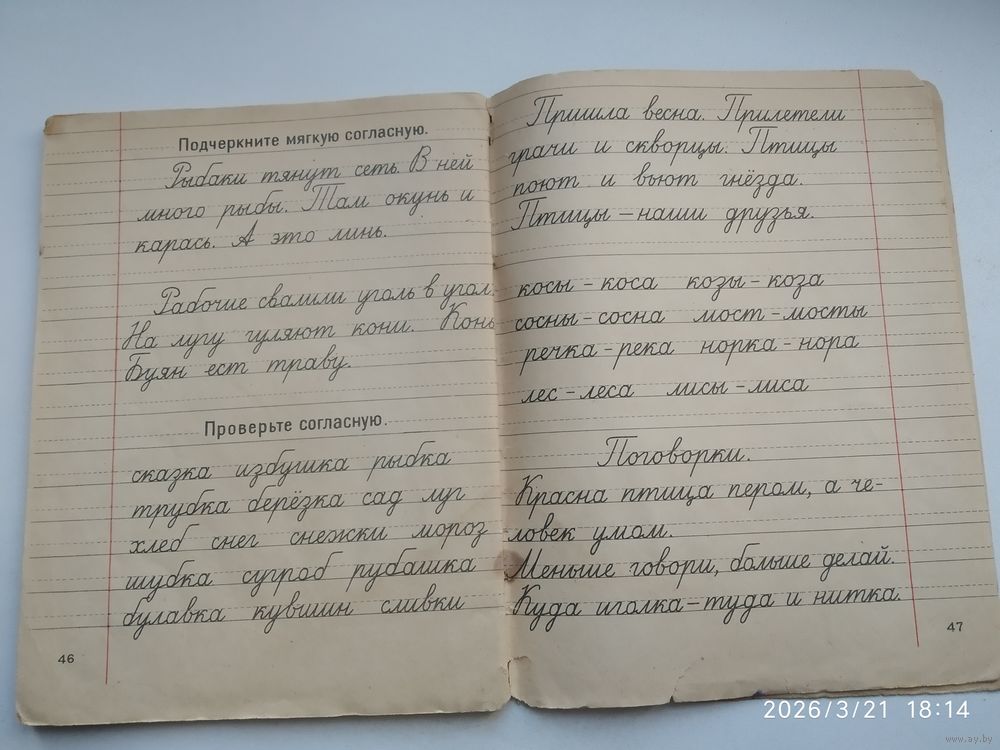 Подчеркните мягкую согласную.
Рыбаки тянут сеть. В ней
много рыбы. Там окунь и
карась. А это линь.
Рабочие свалили уголь в угол.
На лугу гуляют кони. Конь
Буян ест траву.
Проверьте согласную.
сказка избушка рыбка
трубка берёзка сад луг
хлеб снег снежки мороз
шубка сугроб рубашка
булавка кувшин сливки
46
Пришла весна. Прилетели
грачи и скворцы. Птицы
поют и вьют гнёзда.
Птицы – наши друзья.
косы – коса козы – коза
сосны – сосна мост – мосты
речка – река норка – нора
лес – леса лисы – лиса
Поговорки.
Красна птица пером, а че-
ловек умом.
Меньше говори, больше делай.
Куда иголка – туда и нитка.
47
2026/3/21 18:14
www.ay.by